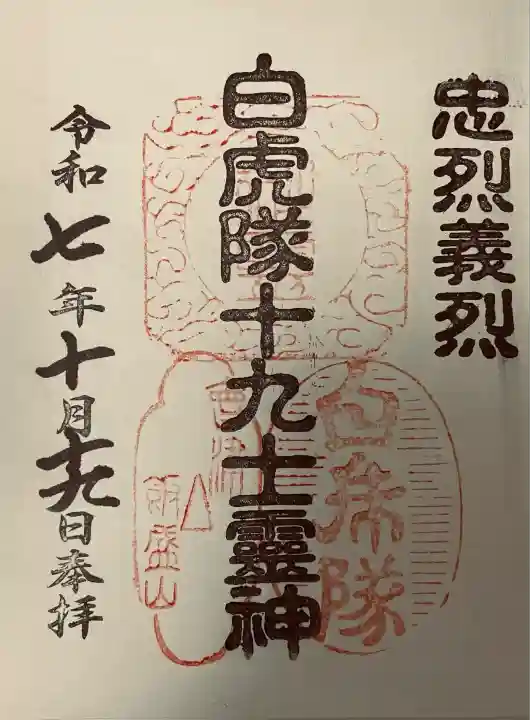 忠烈義烈
白虎隊十九士靈神
令和七年十月十九日奉拝
白虎隊
會津
飯盛山